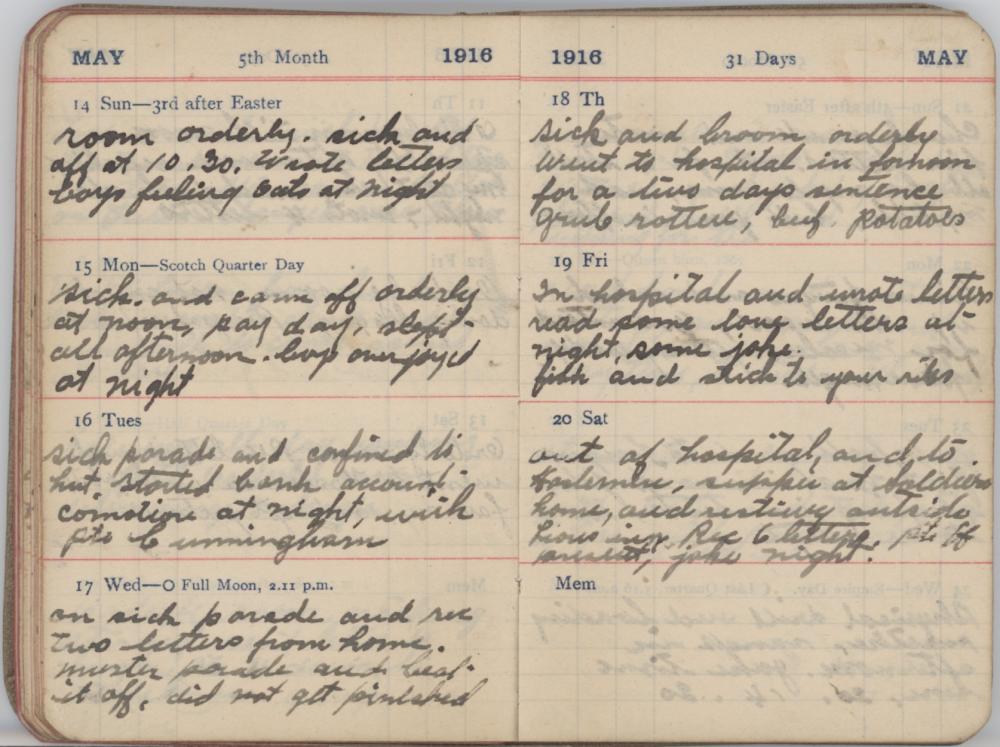 MAY 5th Month 1916
14 Sun—3rd after Easter
room orderly. sick and
off at 10.30. Wrote letters
boys feeling oats at night
15 Mon—Scotch Quarter Day
sick. and came off orderly
at noon, pay day, slept
all afternoon. boys overjoyed
at night
16 Tues
sick parade and confined to
hut. started bank account
comotion at night, with
Pte Cunningham
17 Wed—O Full Moon, 2.11 p.m.
on sick parade and rec
two letters from home.
muster parade and beat
it off. did not get pinched
1916 31 Days MAY
18 Th
sick and broom orderly
went to hospital in fornoon
for a two days sentence
grub rotten, beef. potatoes
19 Fri
In hospital and wrote letters
read some love letters at
night, some joke.
fish and stick to your ribs
20 Sat
out of hospital, and to
Haslemere, supper at Soldiers
home, and resting outside
Rec 6 letters. Pte
joke night.
Mem